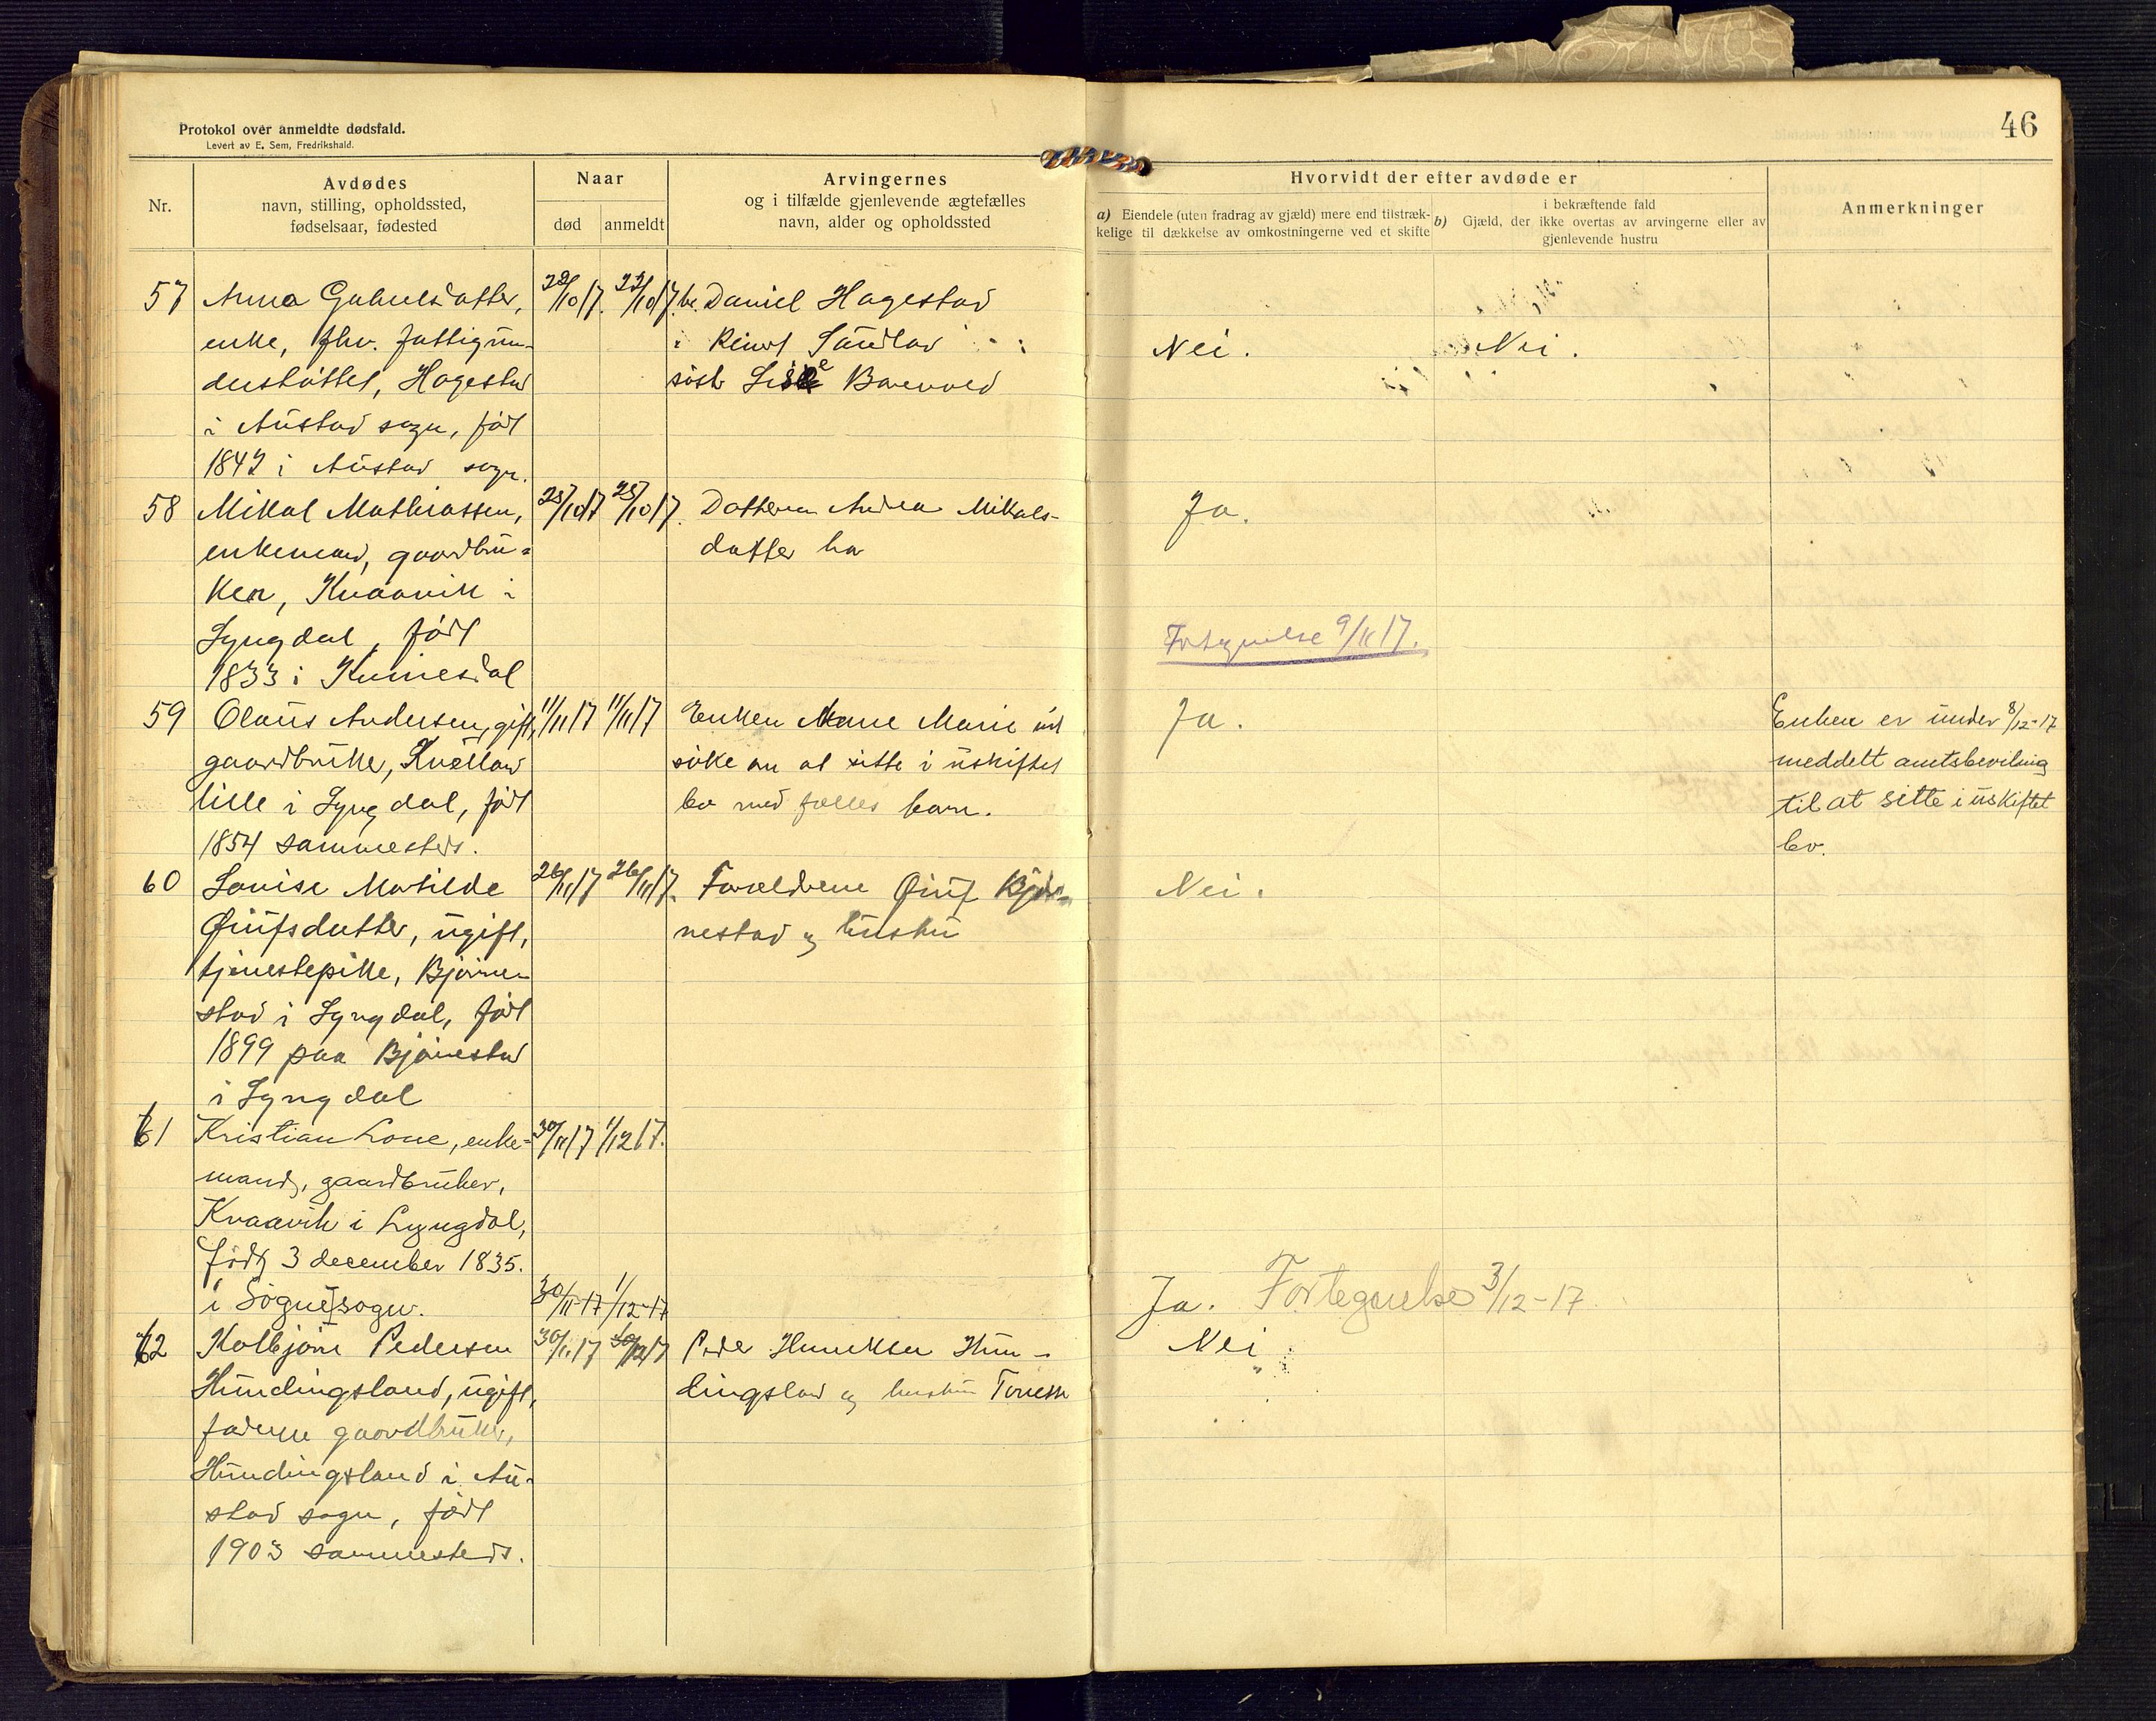 46
Protokol over anmeldte dødsfald.
Levert av E. Sem, Fredrikshald.
Nr.
Avdødes
navn, stilling, opholdssted,
fødselsaar, fødested
Naar
død
anmeldt
Arvingernes
og i tilfælde gjenlevende ægtefælles
navn, alder og opholdssted
Hvorvidt der efter avdøde er
a) Eiendele (uten fradrag av gjæld) mere end tilstræk-
kelige til dækkelse av omkostningerne ved et skifte
i bekræftende fald
b) Gjæld, der ikke overtas av arvingerne eller av
gjenlevende hustru
Anmerkninger
57
Anna Gabrielsdatter,
enke, fhv. fattigun-
derstøttet, Hagestad
i Austad sogn, født
1847 i Austad sogn.
/10 17.
/10 17.
br. Daniel Hagestad
søst
Nei.
Nei.
58
Mikal Mathiassen,
enkemand, gaardbru-
ker, Kvaavik i
Lyngdal, født
1833 i Kvinesdal
25/10 17
25/10 17.
Datteren Andrea Mikals-
datter
Ja.
Fortegnelse 9/11 17.
59
Olaus Andersen, gift,
gaardbruker,
lille i Lyngdal, født
1854 sammesteds.
11/11 17
11/11 17
Enken Marie vil
søke om at sitte i uskiftet
bo med fælles barn.
Ja.
Enken er under 8/12-17
meddelt amtsbevilling
til at sitte i uskiftet
bo.
60
Lovise Matilde
Øiufsdatter, ugift,
tjenestepike, Bjørne-
stad i Lyngdal, født
1899 paa Bjørnestad
i Lyngdal
26/11 17
26/11 17.
Forældrene Øiuf Bjør-
nestad og hustru
Nei.
61
Kristian Lone, enke-
mand, gaardbruker,
Kvaavik i Lyngdal,
født 3 december 1835.
i Søgne sogn.
30/11 17
1/12 17.
30/11-17
1/12-17
Ja. Fortegnelse 3/12-17
62
Kolbjørn Pedersen
Hundingsland, ugift,
faderen gaardbruker,
Hundingsland i Au-
stad sogn, født
1903 sammesteds.
30/11 17
/12 17
Peder Henriksen Hun-
dingsland og hustru
Nei